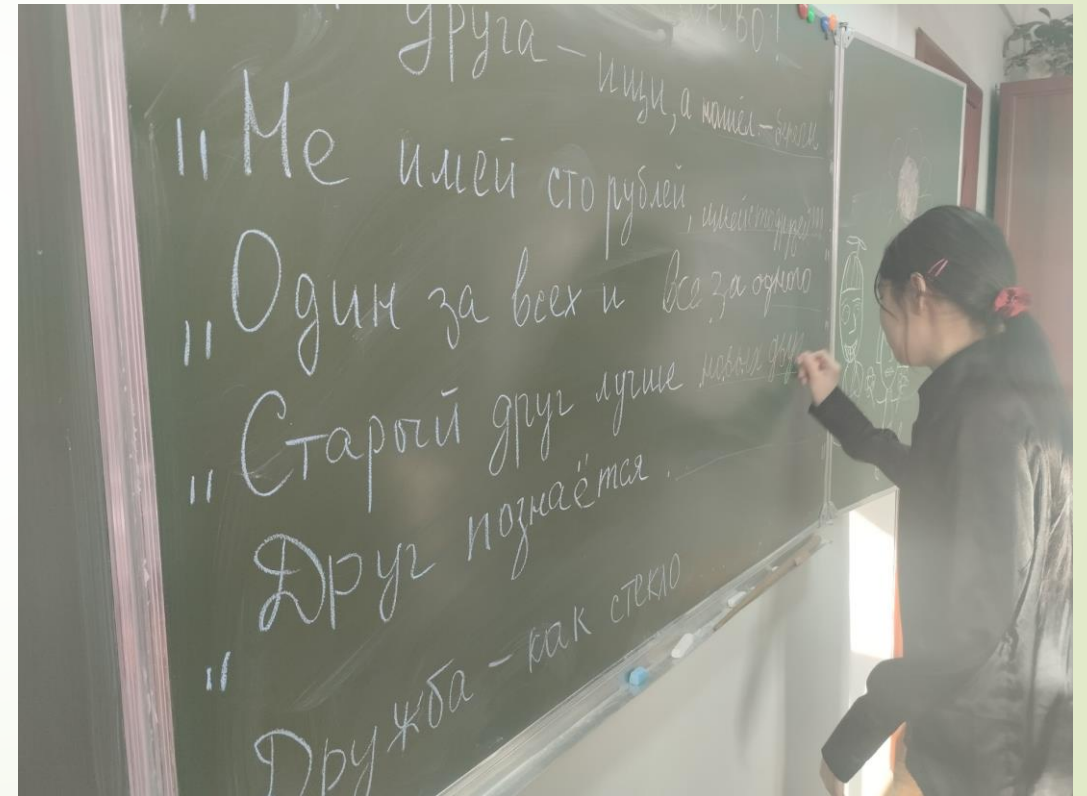 Друга - ищи, а нашёл - береги
"Не имей сто рублей, имей сто друзей"
"Один за всех и все за одного
"Старый друг лучше новых
Друг познаётся
"Дружба - как стекло